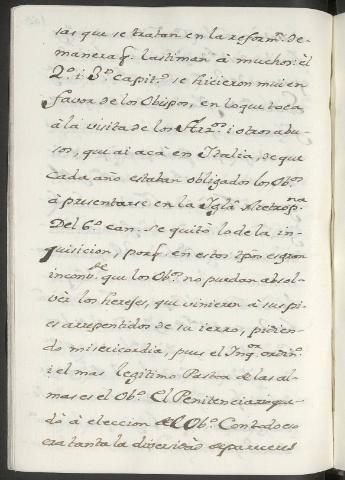 sas que se tratan en la reform.ⁿ de-
manera q. lastiman à muchos: el
2.º i 3.º capit.º se hicieron mui en
favor de los Obispos, en lo que toca
à la visita de los Arz.ºˢ i otros abu-
sos, que ai acà en Italia, de que
cada año estaban obligados los Ob.ºˢ
à presentarse en la Iglª Metrop.ⁿᵃ
Del 6.º can. se quitò lo de la in-
quisicion, porq. en estos tpos es gran
inconv.ᵗᵉ que los Ob.ºˢ no puedan absol-
vèr los hereges, que vinieren à sus pi-
es arrepentidos de su ierro, pidien-
do misericordia, pues el Inq.ºʳ ordin.º
i el mas legitimo Pastor de las al-
mas es el Ob.º El Penitenciario que-
dò à eleccion del Ob.º Con todo eso
era tanta la diversidad de pareceres